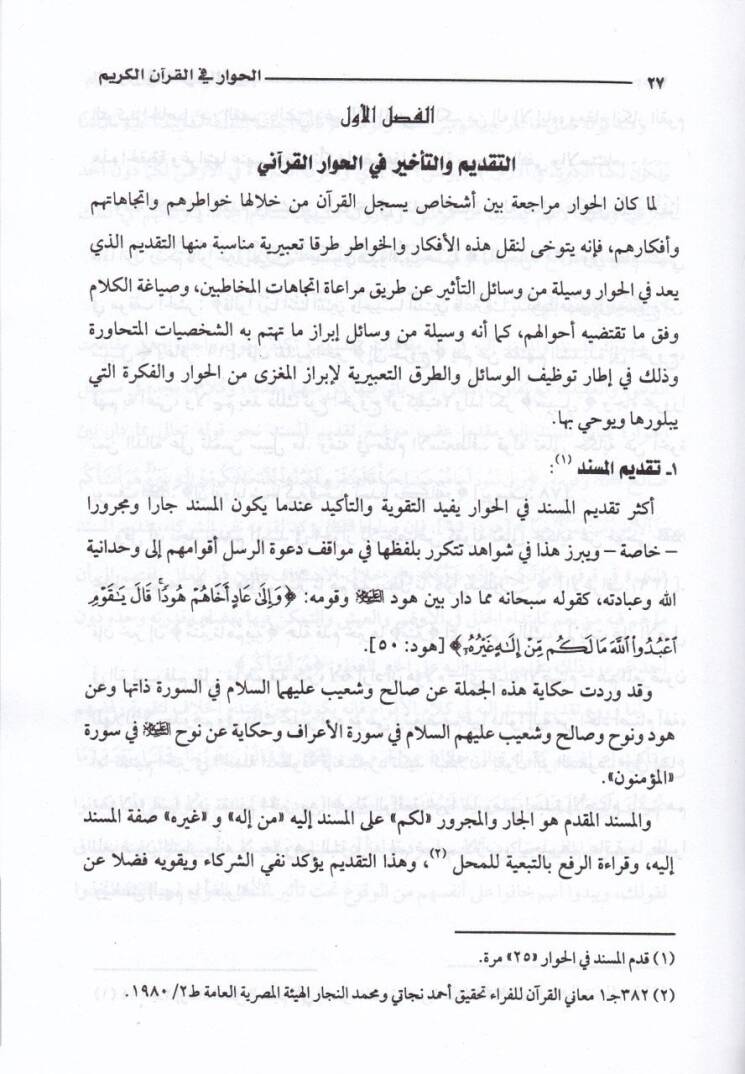 ٢٧ الحوار في القرآن الكريم
الفصل الأول
التقديم والتأخير في الحوار القرآني
لما كان الحوار مراجعة بين أشخاص يسجل القرآن من خلالها خواطرهم واتجاهاتهم
وأفكارهم، فإنه يتوخى لنقل هذه الأفكار والخواطر طرقا تعبيرية مناسبة منها التقديم الذي
يعد في الحوار وسيلة من وسائل التأثير عن طريق مراعاة اتجاهات المخاطبين، وصياغة الكلام
وفق ما تقتضيه أحوالهم، كما أنه وسيلة من وسائل إبراز ما تهتم به الشخصيات المتحاورة
وذلك في إطار توظيف الوسائل والطرق التعبيرية لإبراز المغزى من الحوار والفكرة التي
يبلورها ويوحي بها.
١ـ تقديم المسند (١):
أكثر تقديم المسند في الحوار يفيد التقوية والتأكيد عندما يكون المسند جارا ومجرورا
– خاصة – ويبرز هذا في شواهد تتكرر بلفظها في مواقف دعوة الرسل أقوامهم إلى وحدانية
الله وعبادته، كقوله سبحانه مما دار بين هود ﷺ وقومه: ﴿وَإِلَىٰ عَادٍ أَخَاهُمْ هُودًا ۚ قَالَ يَـٰقَوْمِ
ٱعْبُدُوا۟ ٱللَّهَ مَا لَكُم مِّنْ إِلَـٰهٍ غَيْرُهُۥ﴾ [هود: ٥٠].
وقد وردت حكاية هذه الجملة عن صالح وشعيب عليهما السلام في السورة ذاتها وعن
هود ونوح وصالح وشعيب عليهم السلام في سورة الأعراف وحكاية عن نوح ﷺ في سورة
«المؤمنون».
والمسند المقدم هو الجار والمجرور «لكم» على المسند إليه «من إله» و «غيره» صفة المسند
إليه، وقراءة الرفع بالتبعية للمحل (٢)، وهذا التقديم يؤكد نفي الشركاء ويقويه فضلا عن
(١) قدم المسند في الحوار «٢٥» مرة.
(٢) ٣٨٢جـ١ معاني القرآن للفراء تحقيق أحمد نجاتي ومحمد النجار الهيئة المصرية العامة ط٢/ ١٩٨٠.